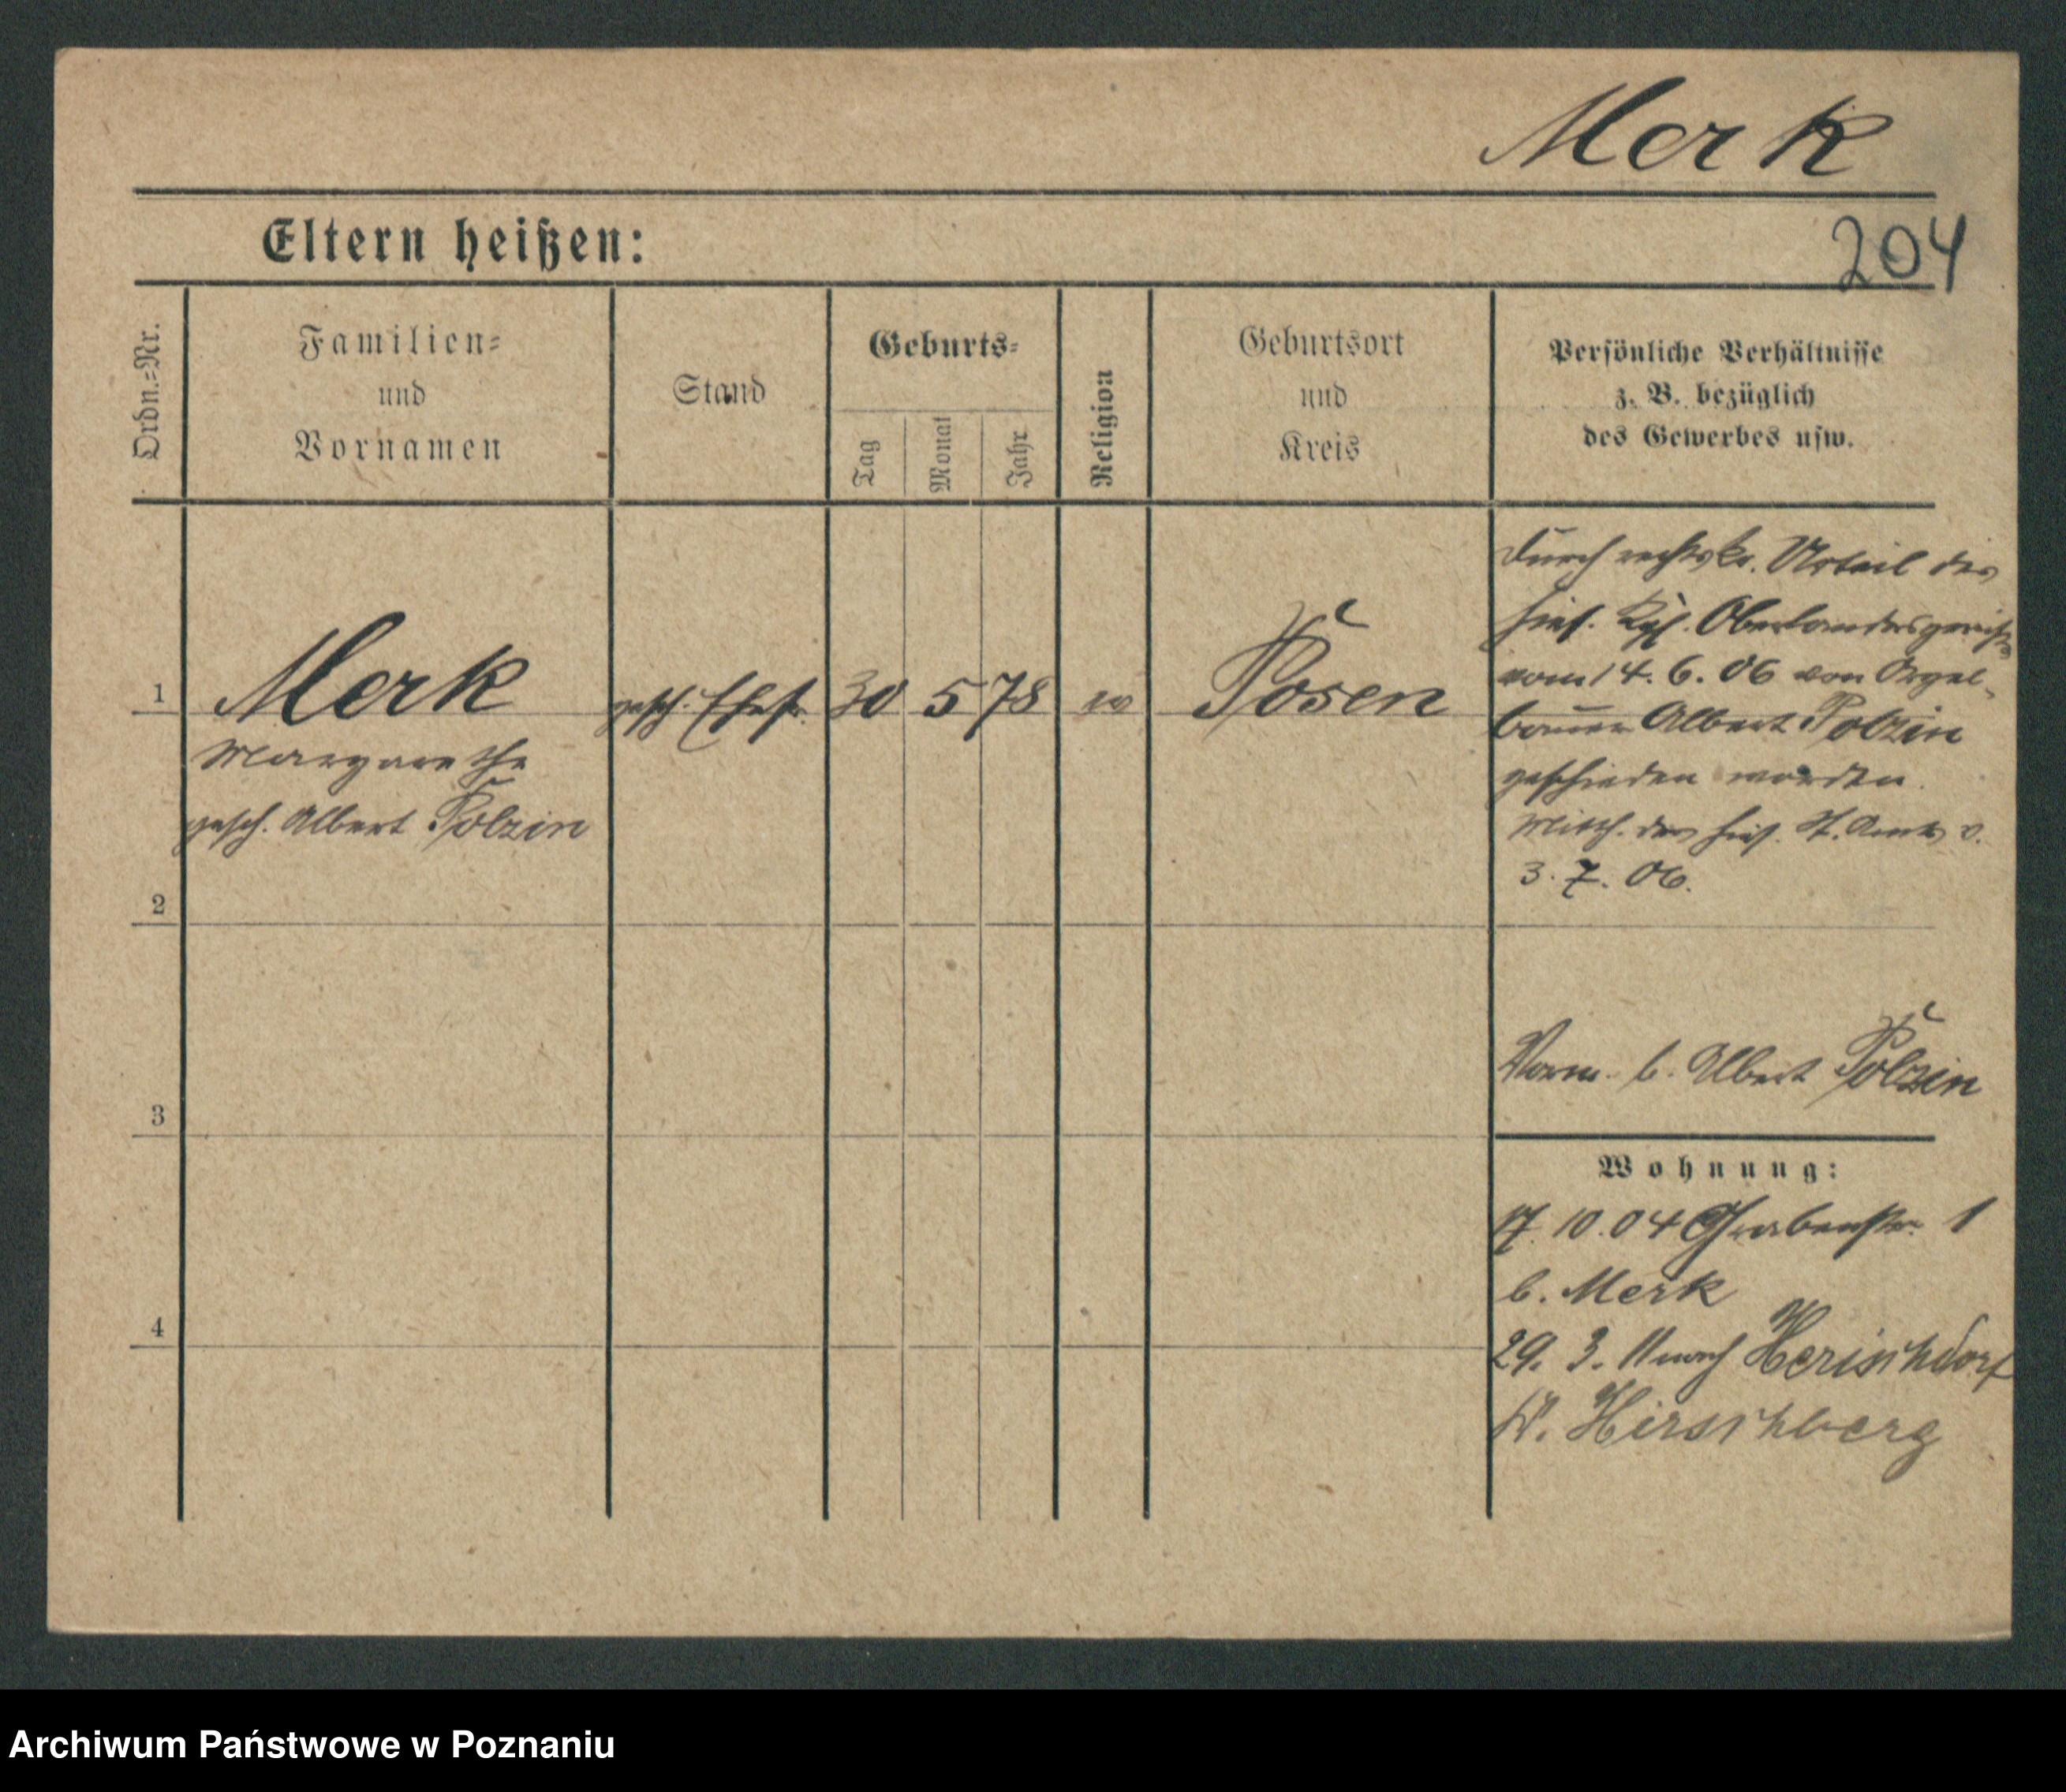 Merk
204
Eltern heißen:
Ordn.=Nr.
Familien=
und
Vornamen
Stand
Geburts=
Tag
Monat
Jahr
Religion
Geburtsort
und
Kreis
Persönliche Verhältnisse
z. B. bezüglich
des Gewerbes usw.
1
Merk
Margarethe
gesch. Albert Polzin
gesch. Ehefr.
30 5 78
Posen
durch rechtskr. Urteil des
hies. Kgl. Oberlandesgerichts
vom 14. 6. 06 von Orgel-
bauer Albert Polzin
geschieden worden.
Mitth. des hies. St. Amts v.
3. 7. 06.
2
3
4
Vorm. b. Albert Polzin
Wohnung:
17. 10. 04 Grabenstr. 1
b. Merk
29. 3. 11 nach Herischdorf
Kr. Hirschberg
Archiwum Państwowe w Poznaniu